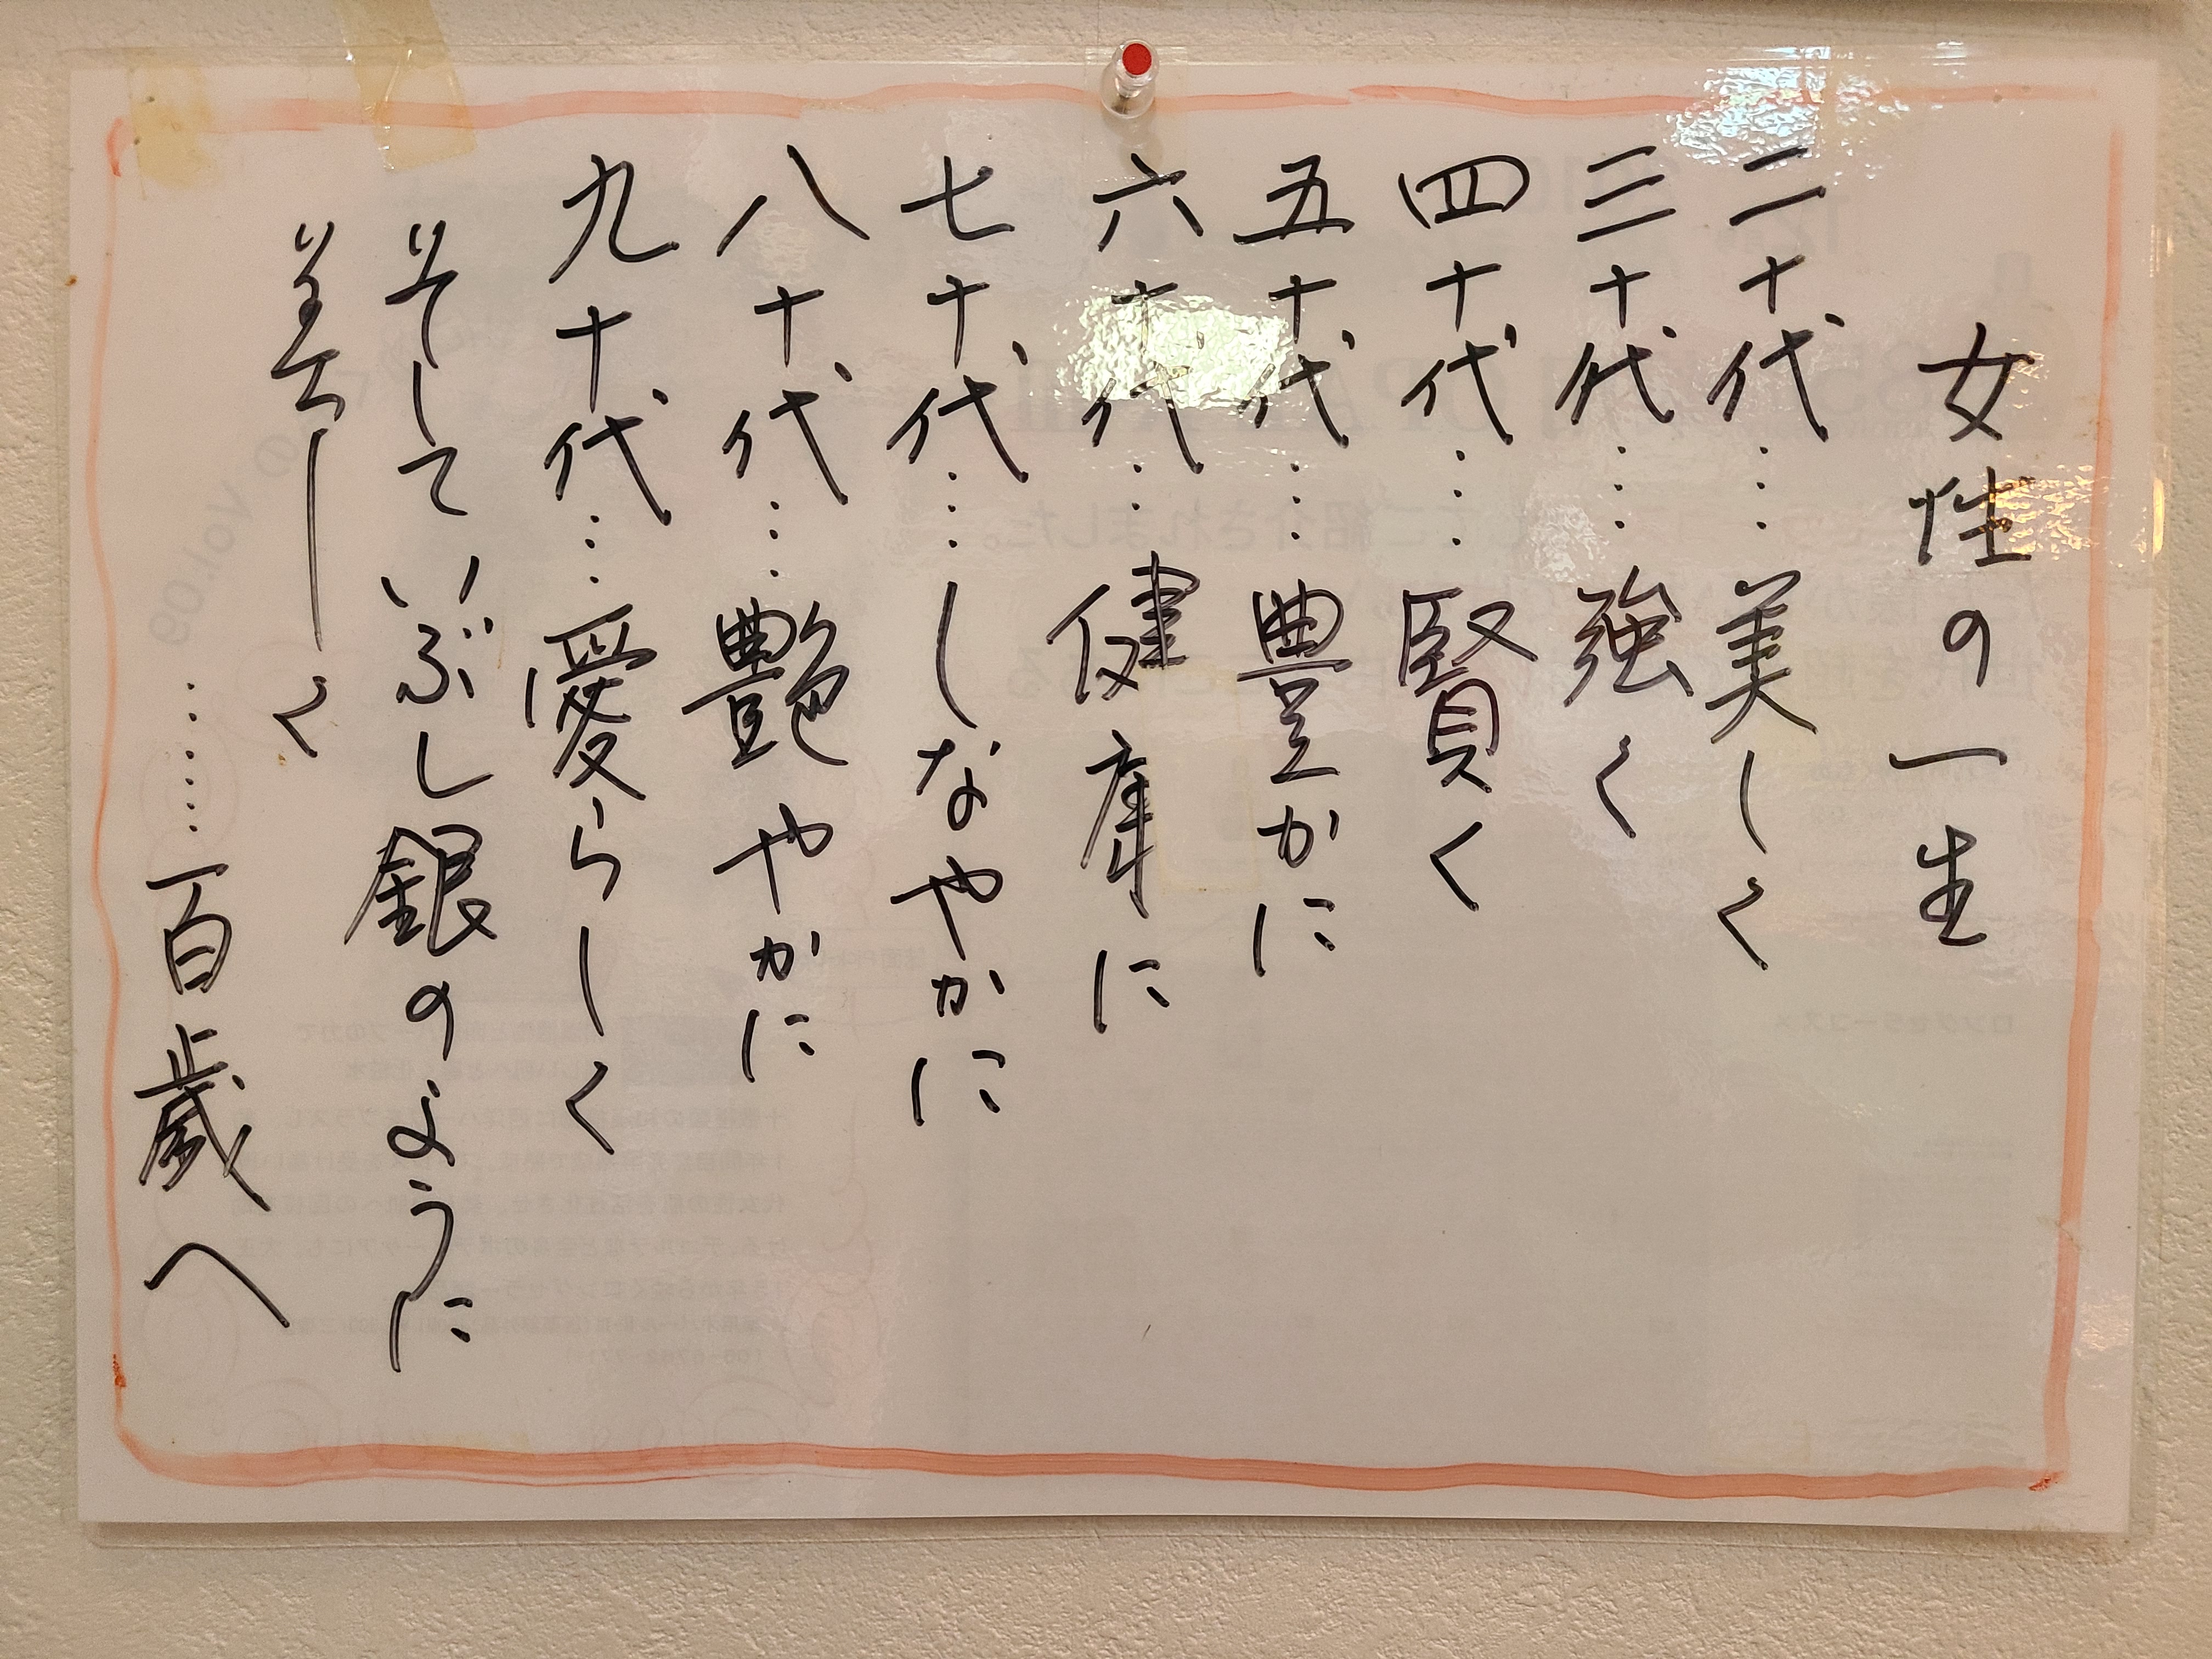 女性の一生
二十代…美しく
三十代…強く
四十代…賢く
五十代…豊かに
六十代…健康に
七十代…しなやかに
八十代…艶やかに
九十代…愛らしく
そして いぶし銀のように
美しく
……百歳へ